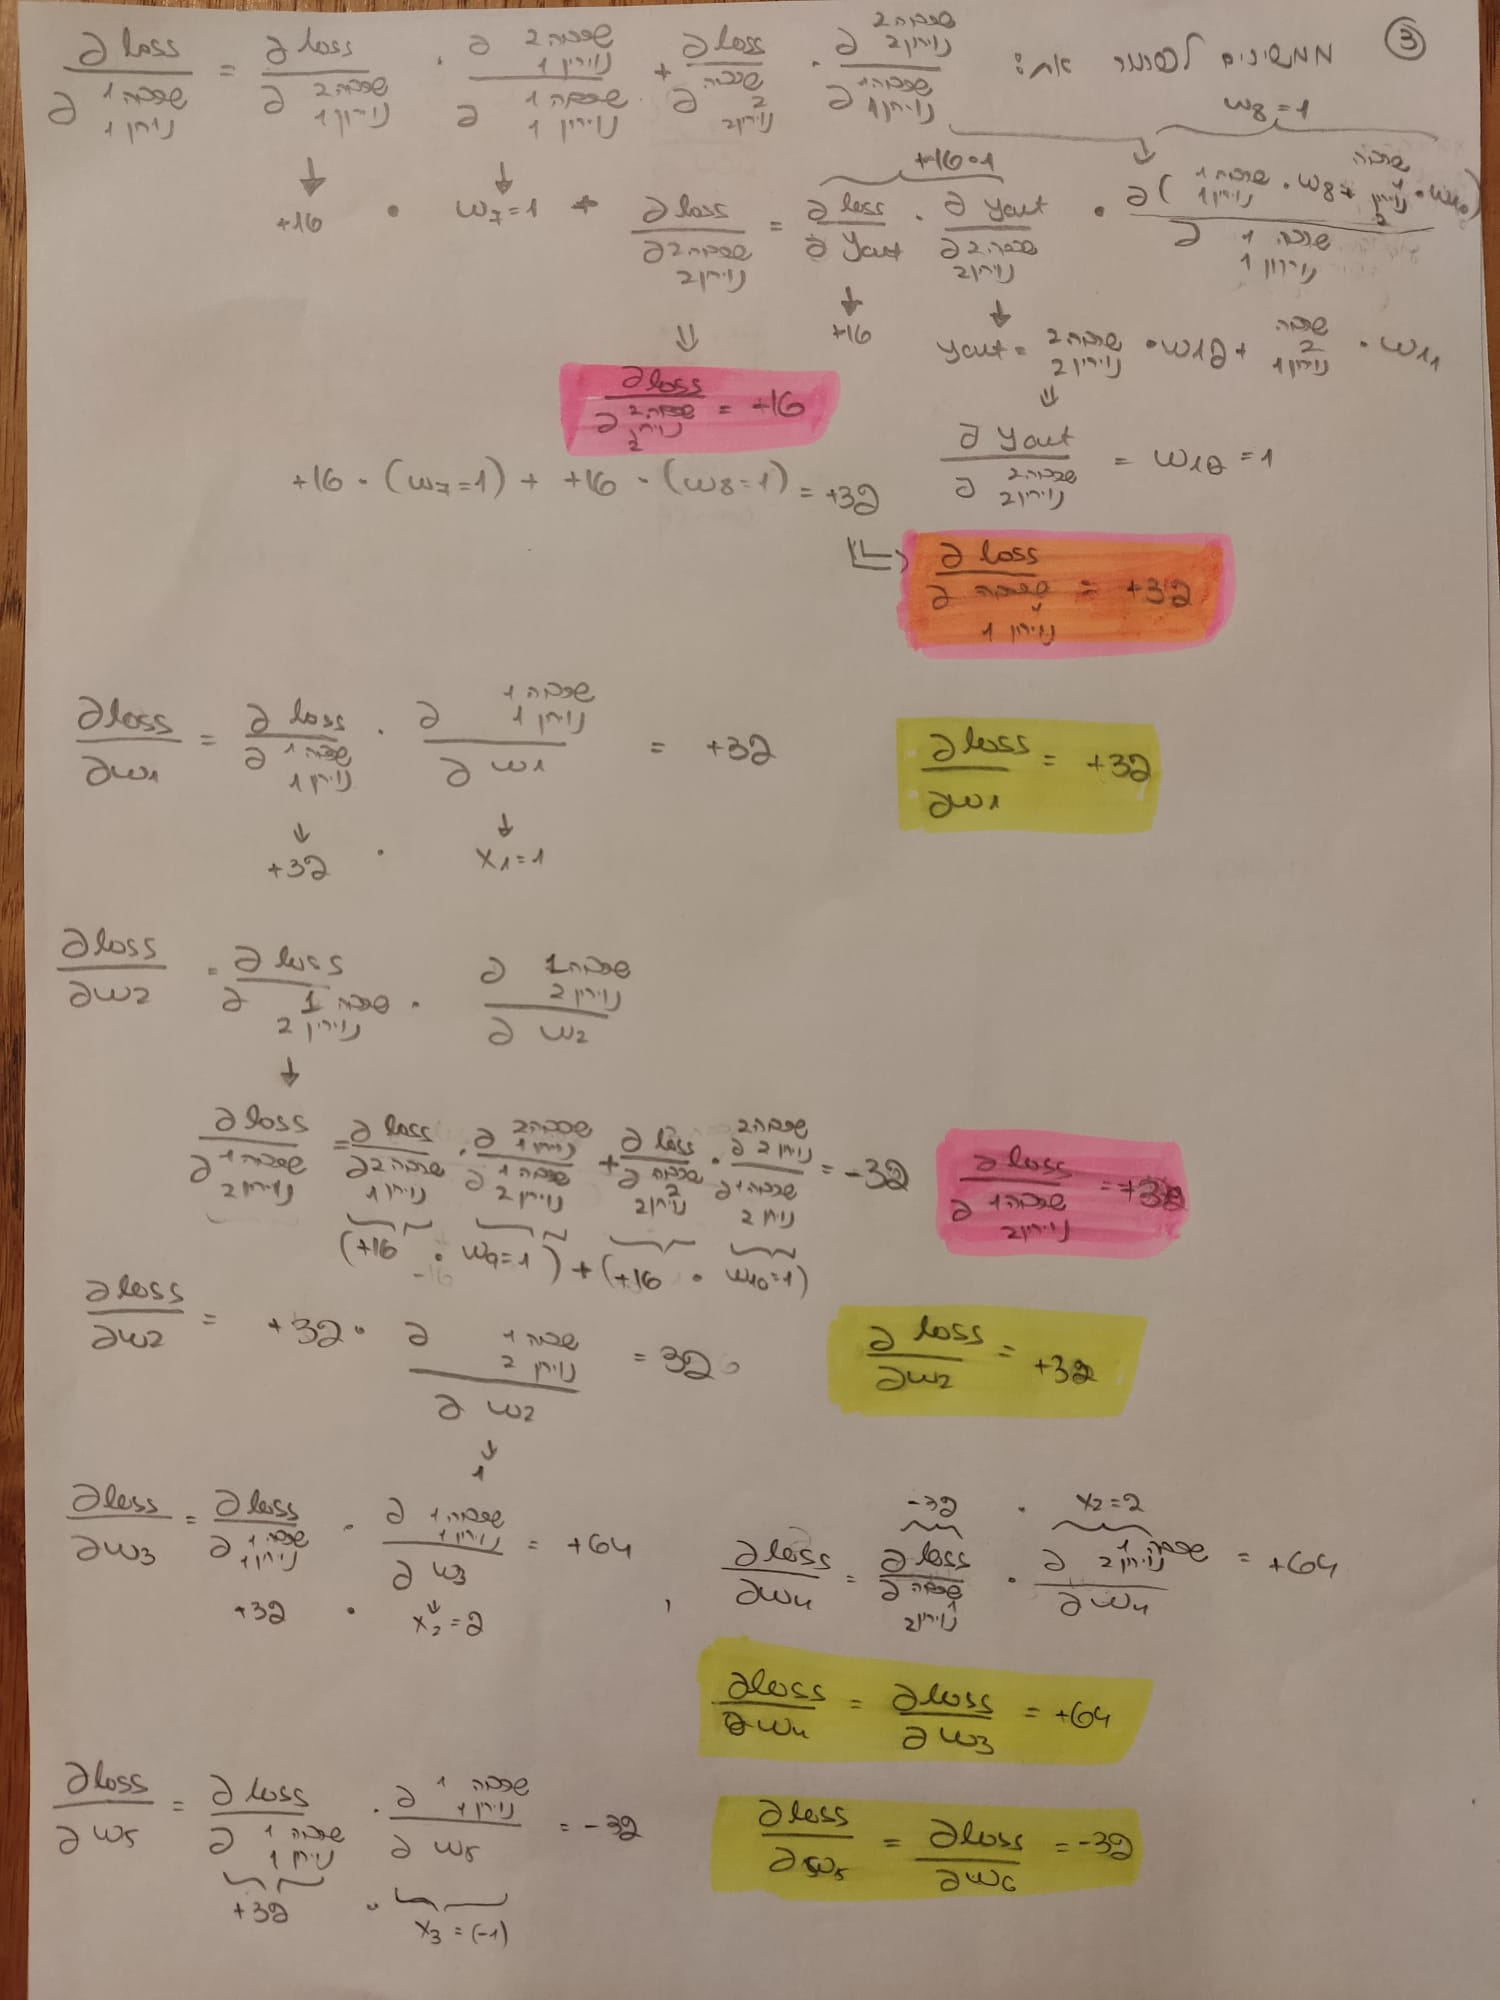 ③ ממשיכים לסכימה את:
∂loss/∂שכבה 1 נוירון 1 = ∂loss/∂שכבה 2 נוירון 1 · ∂שכבה 2 נוירון 1/∂שכבה 1 נוירון 1 + ∂loss/∂שכבה 2 נוירון 2 · ∂שכבה 2 נוירון 2/∂שכבה 1 נוירון 1
w8=1
+16·1
+16 · w7=1 + ∂loss/∂שכבה 2 נוירון 2 = ∂loss/∂yout · ∂yout/∂שכבה 2 נוירון 2 · ∂(שכבה 1 נוירון 1 · w8 + שכבה 1 נוירון 2 · w10)/∂שכבה 1 נוירון 1
+16
yout = שכבה 2 נוירון 2 · w12 + שכבה 2 נוירון 1 · w11
∂loss/∂שכבה 2 נוירון 2 = +16
∂yout/∂שכבה 2 נוירון 2 = w12 = 1
+16 · (w7=1) + +16 · (w8=1) = +32
∂loss/∂שכבה 1 נוירון 1 = +32
∂loss/∂w1 = ∂loss/∂שכבה 1 נוירון 1 · ∂שכבה 1 נוירון 1/∂w1 = +32
∂loss/∂w1 = +32
+32 · x1=1
∂loss/∂w2 = ∂loss/∂שכבה 1 נוירון 2 · ∂שכבה 1 נוירון 2/∂w2
∂loss/∂שכבה 1 נוירון 2 = ∂loss/∂שכבה 2 נוירון 1 · ∂שכבה 2 נוירון 1/∂שכבה 1 נוירון 2 + ∂loss/∂שכבה 2 נוירון 2 · ∂שכבה 2 נוירון 2/∂שכבה 1 נוירון 2 = -32
∂loss/∂שכבה 1 נוירון 2 = +32
(+16 · w9=1) + (+16 · w10=1)
∂loss/∂w2 = +32 · ∂שכבה 1 נוירון 2/∂w2 = 32
∂loss/∂w2 = +32
1
∂loss/∂w3 = ∂loss/∂שכבה 1 נוירון 1 · ∂שכבה 1 נוירון 1/∂w3 = +64
+32 · x2=2 ,
-32 · x2=2
∂loss/∂w4 = ∂loss/∂שכבה 1 נוירון 2 · ∂שכבה 1 נוירון 2/∂w4 = +64
∂loss/∂w4 = ∂loss/∂w3 = +64
∂loss/∂w5 = ∂loss/∂שכבה 1 נוירון 1 · ∂שכבה 1 נוירון 1/∂w5 = -32
∂loss/∂w5 = ∂loss/∂w6 = -32
+32 · x3=(-1)